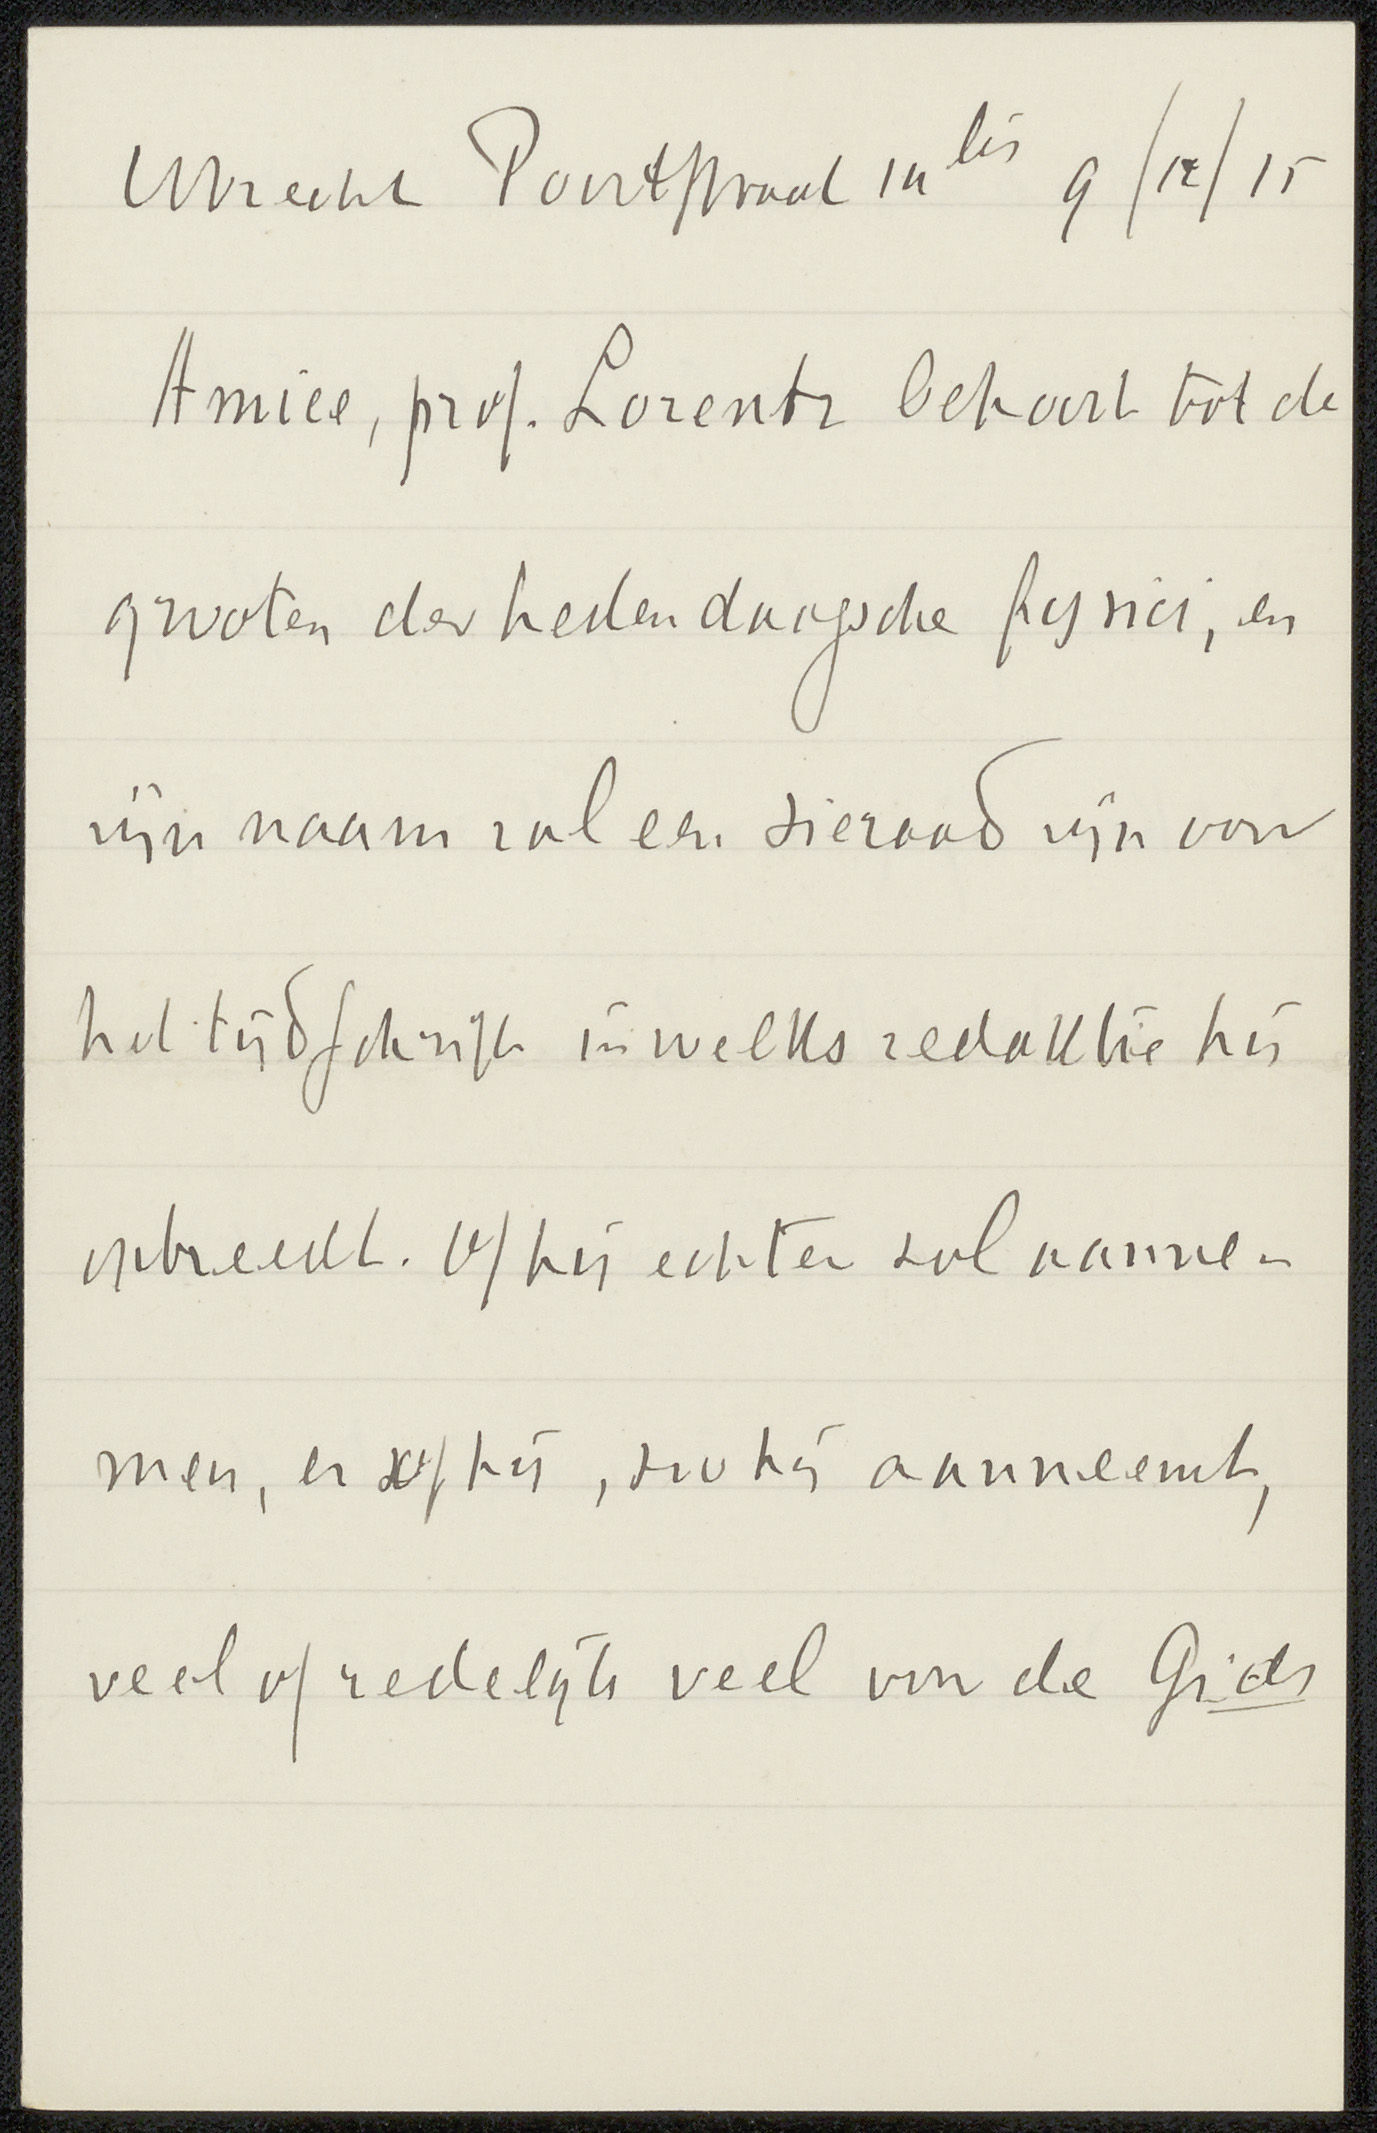 Utrecht Poortstraat bis 9/12/15
Amice, prof. Lorentz behoort tot de
grooten der hedendaagsche fysici, en
zijn naam zal een sieraad zijn voor
het tijdschrift in welks redaktie hij
optreedt. Of hij echter zal aanne-
men, en of hij, zoo hij aanneemt,
veel of redelijk veel voor de Gids